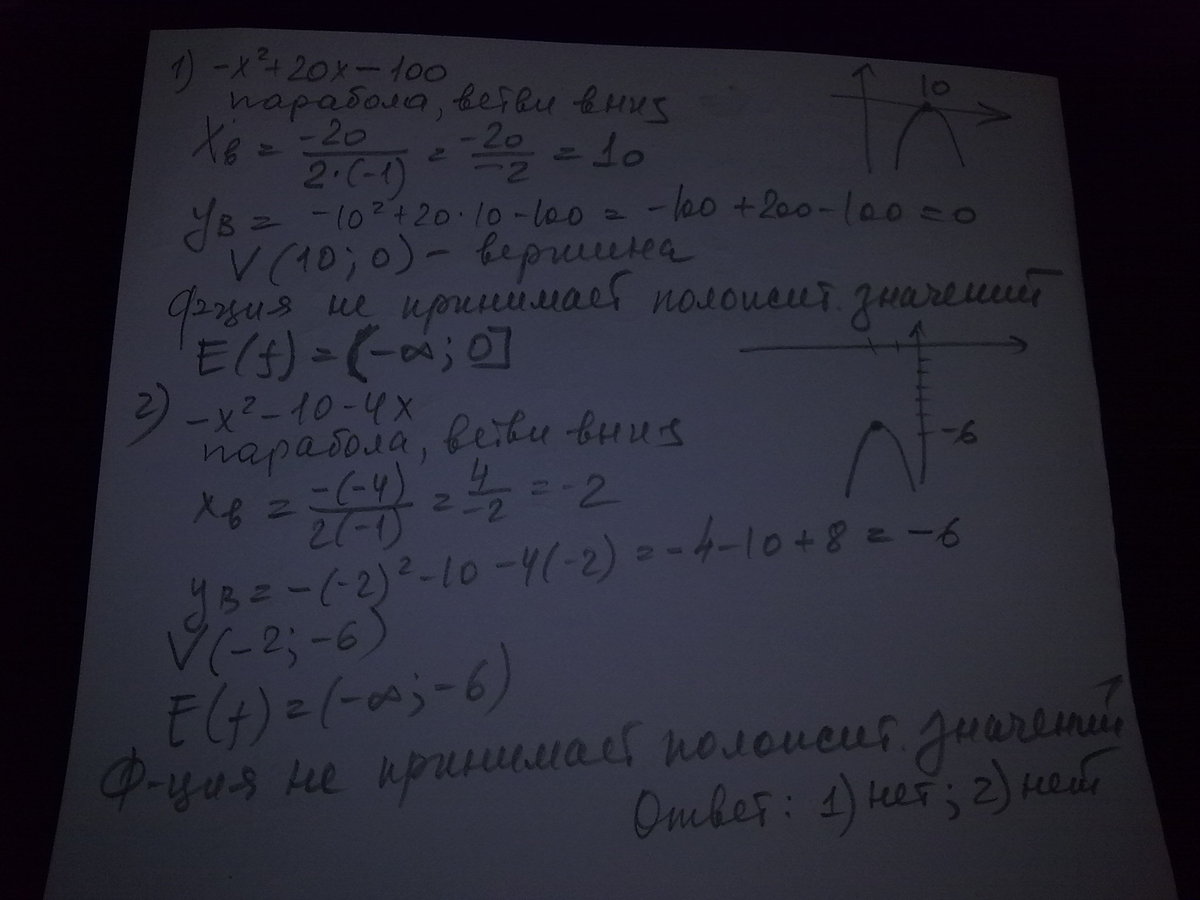 1) -x²+20x-100
парабола, ветви вниз
10
Xв = -20/2·(-1) = -20/-2 = 10
yв = -10²+20·10-100 = -100+200-100=0
V(10;0) - вершина
Ф-ция не принимает положит. значений
E(f)=(-∞;0]
2) -x²-10-4x
парабола, ветви вниз
-6
xв = -(-4)/2(-1) = 4/-2 = -2
yв = -(-2)²-10-4(-2) = -4-10+8 = -6
V(-2;-6)
E(f)=(-∞;-6)
Ф-ция не принимает положит. значений
Ответ: 1) нет; 2) нет